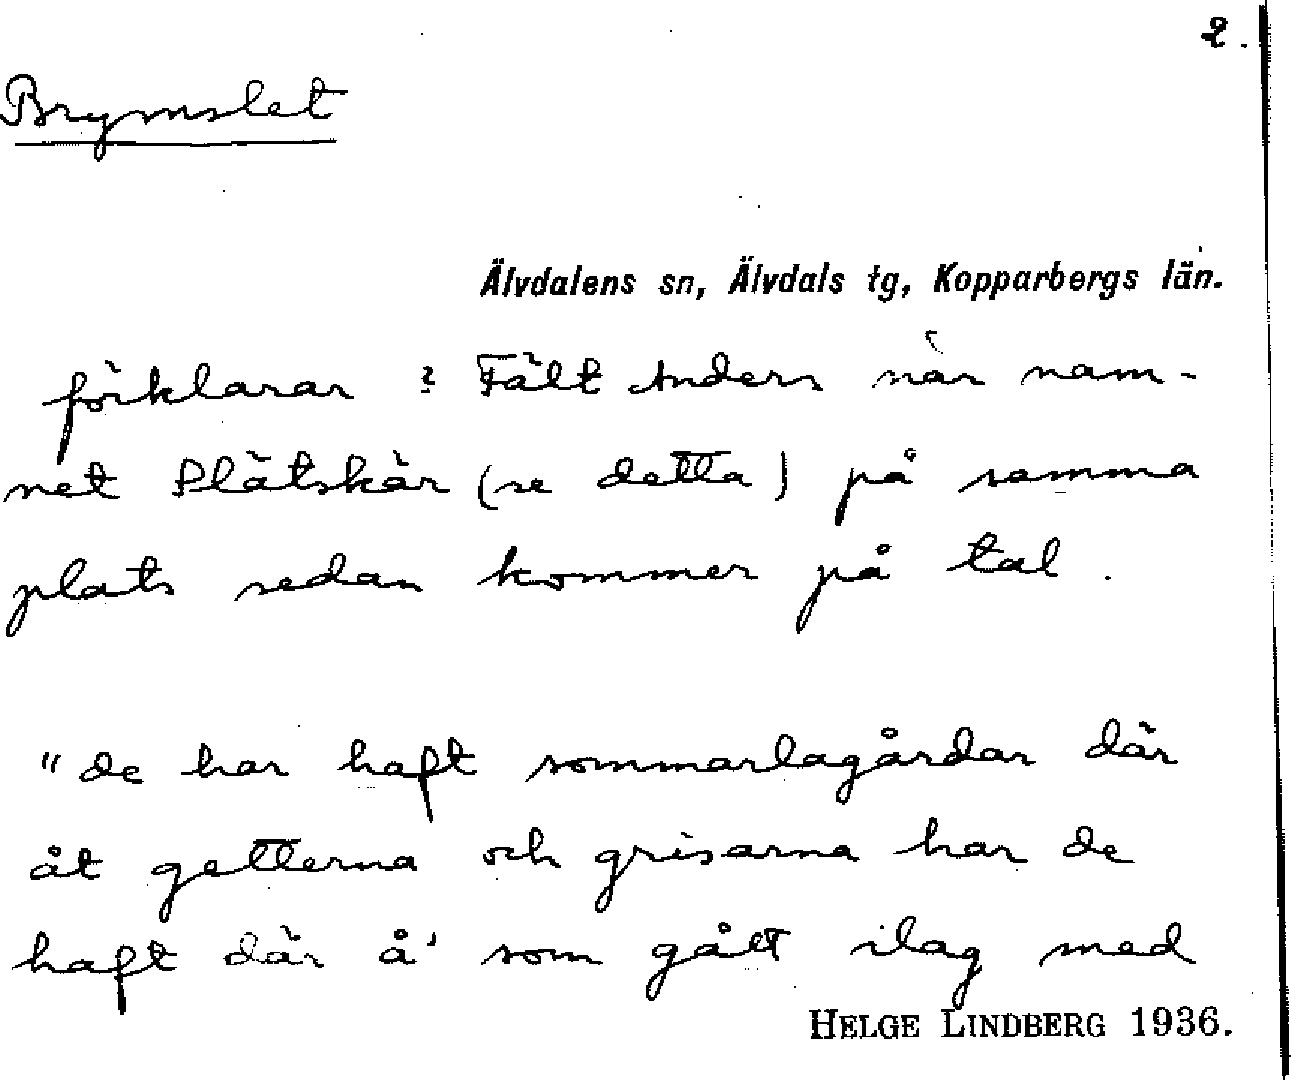 2.
Brymslet
Älvdalens sn, Älvdals tg, Kopparbergs län.
förklarar ? Fält Anders när nam-
net Slätskär (se detta) på samma
plats sedan kommer på tal.
"de har haft sommarlagårdar där
åt getterna och grisarna har de
haft där å' som gått ilag med
HELGE LINDBERG 1936.